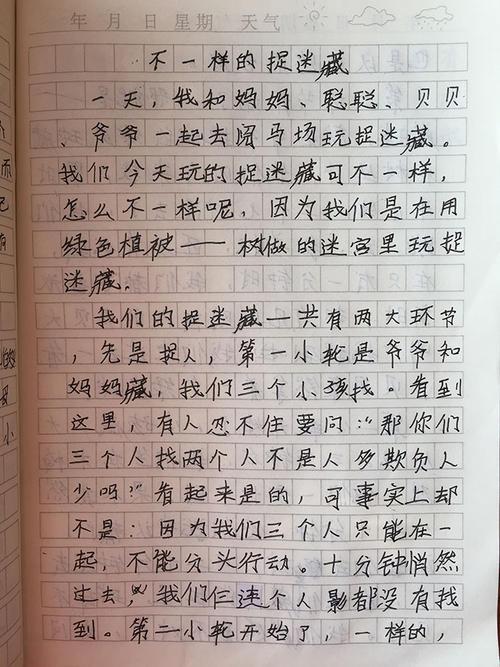 年 月 日 星期 天气
不一样的捉迷藏
一天，我和妈妈、聪聪、贝贝
、爷爷一起去阅马场玩捉迷藏。
我们今天玩的捉迷藏可不一样，
怎么不一样呢，因为我们是在用
绿色植被——树做的迷宫里玩捉
迷藏.
我们的捉迷藏一共有两大环节
，先是捉人，第一小轮是爷爷和
妈妈藏，我们三个小孩找。看到
这里，有人忍不住要问："那你们
三个人找两个人不是人多欺负人
少吗？"看起来是的，可事实上却
不是：因为我们三个人只能在一
起，不能分头行动。十分钟悄然
过去，我们仨连个人影都没有找
到。第二小轮开始了，一样的，